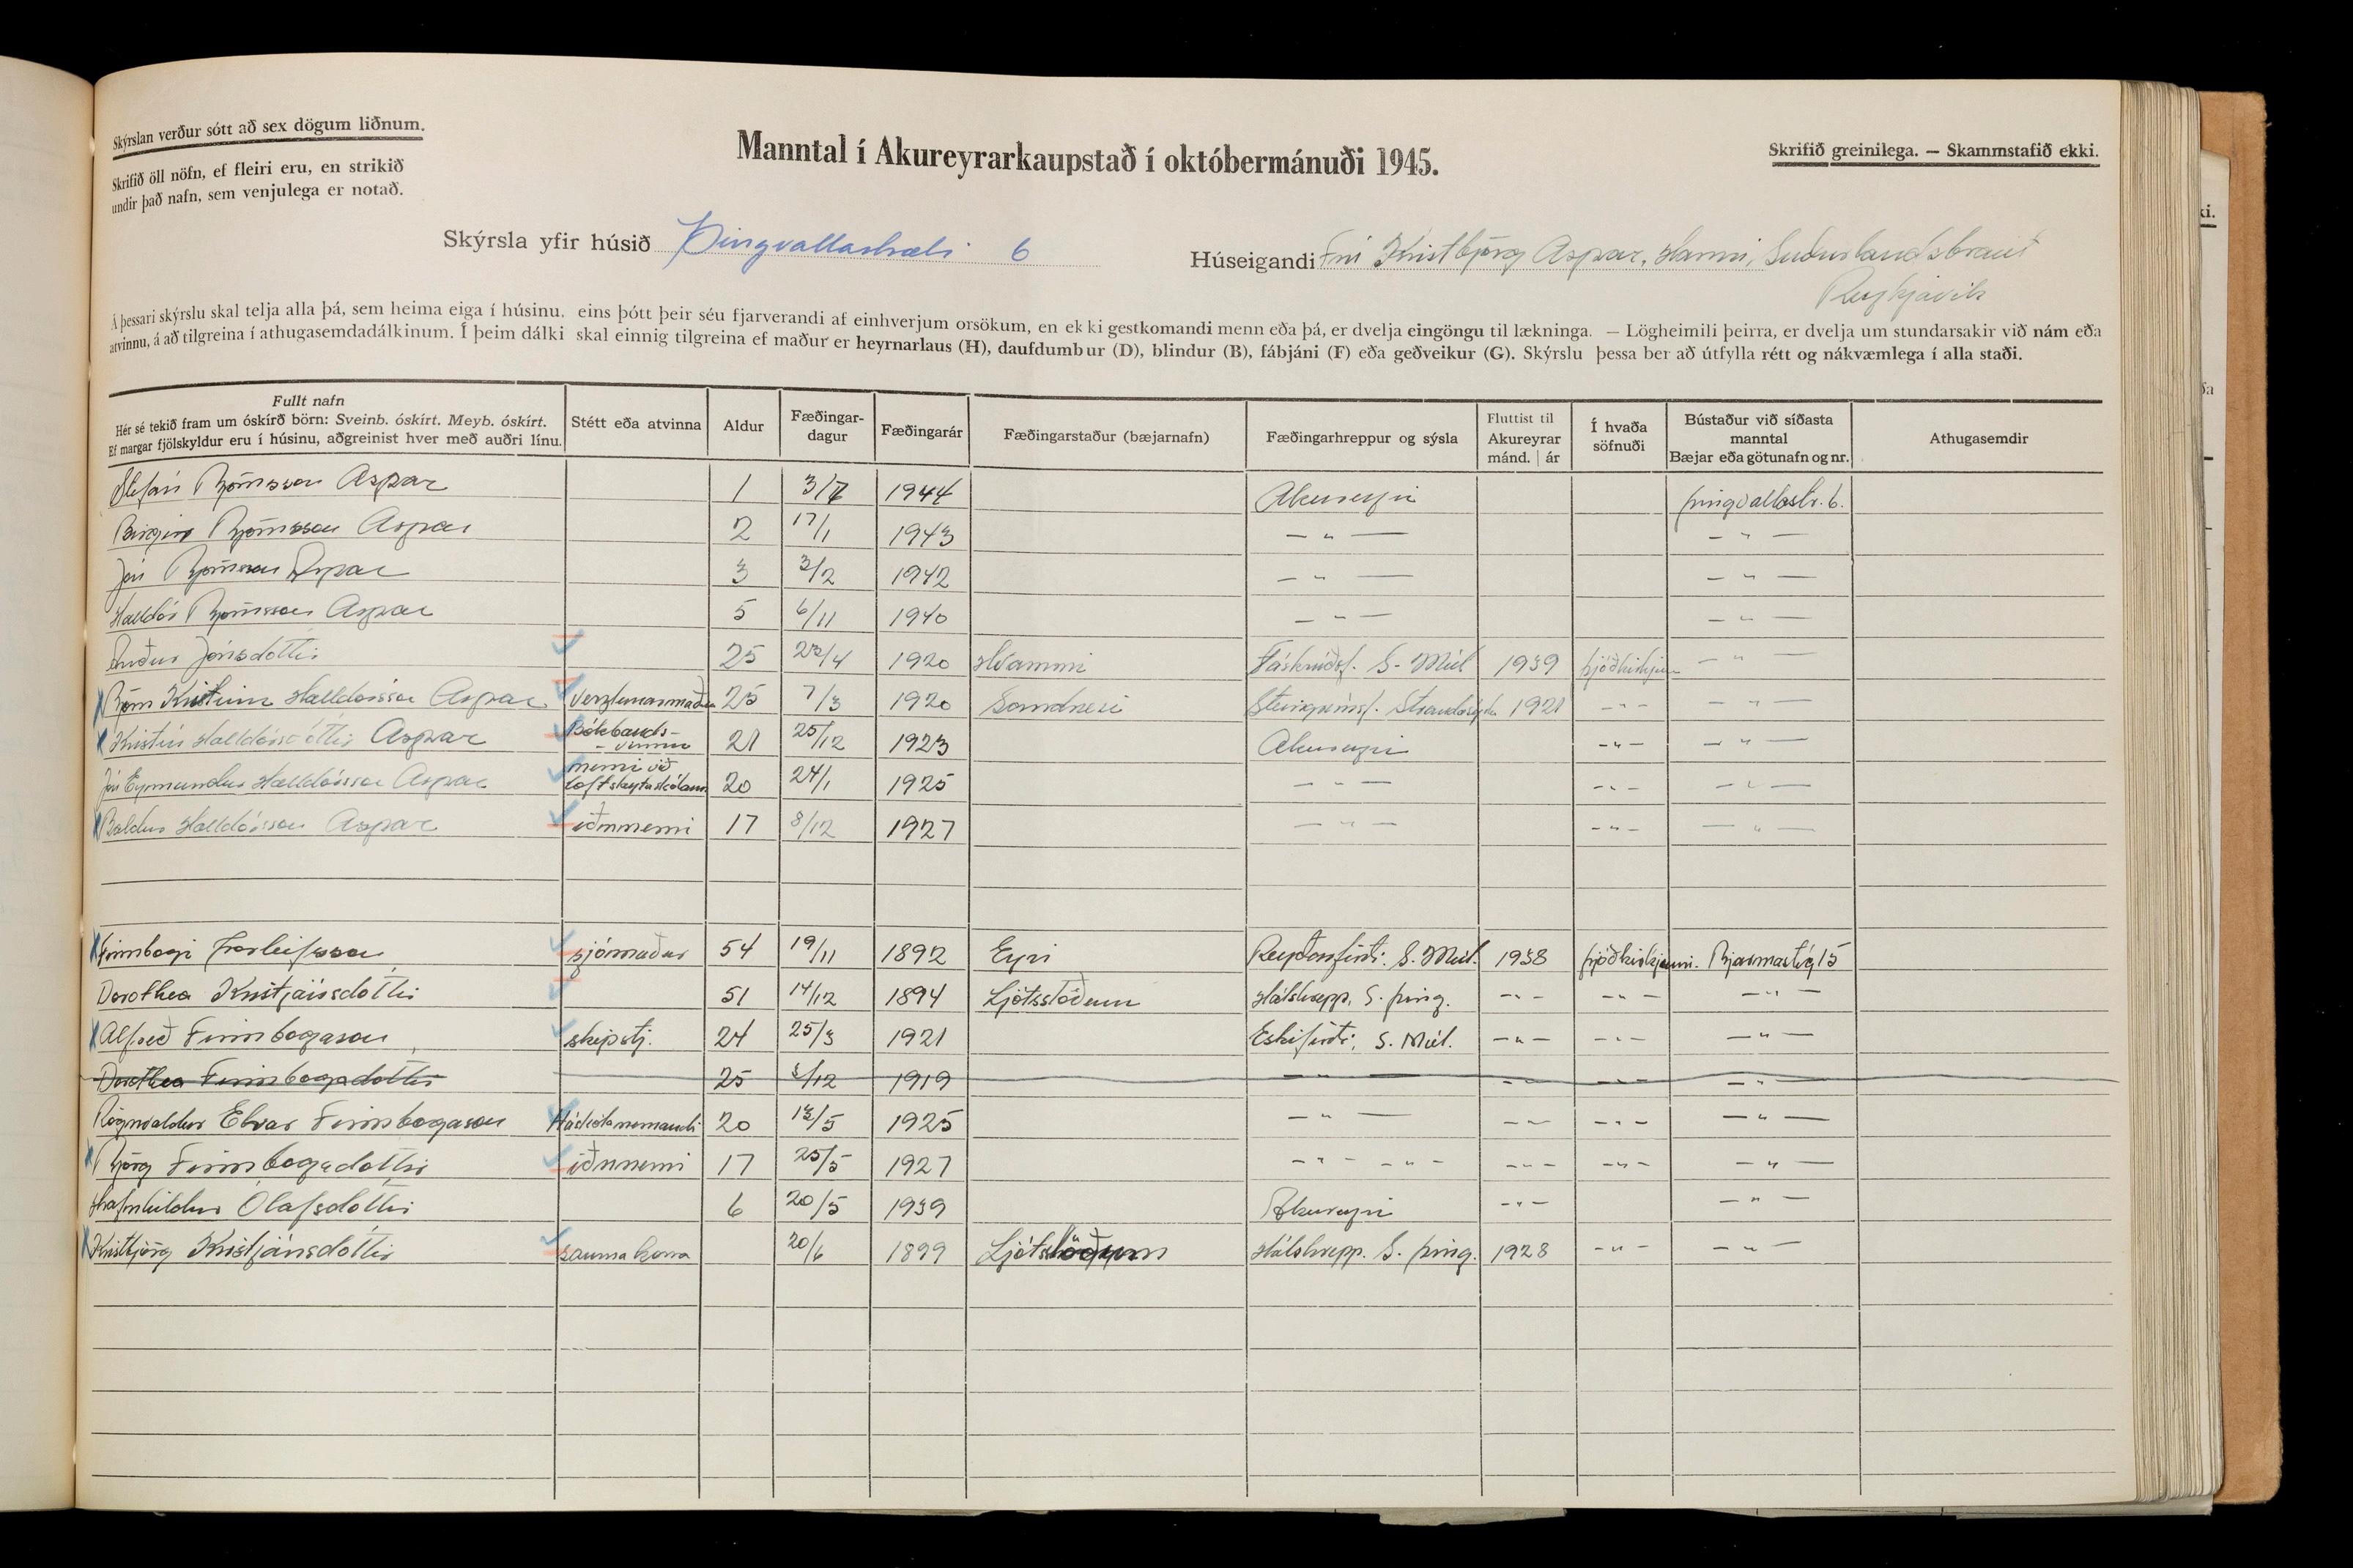 Skýrslan verður sótt að sex dögum liðnum.
Skrifið öll nöfn, ef fleiri eru, en strikið
undir það nafn, sem venjulega er notað.
Manntal í Akureyrarkaupstað í októbermánuði 1945.
Skrifið greinilega. — Skammstafið ekki.
Skýrsla yfir húsið Þingvallastræti 6
Húseigandi Frú Kristbjörg Aspar, Hvammi, Suðurlandsbraut
Reykjavík
Á þessari skýrslu skal telja alla þá, sem heima eiga í húsinu, eins þótt þeir séu fjarverandi af einhverjum orsökum, en ekki gestkomandi menn eða þá, er dvelja eingöngu til lækninga. — Lögheimili þeirra, er dvelja um stundarsakir við nám eða
atvinnu, á að tilgreina í athugasemdadálkinum. Í þeim dálki skal einnig tilgreina ef maður er heyrnarlaus (H), daufdumbur (D), blindur (B), fábjáni (F) eða geðveikur (G). Skýrslu þessa ber að útfylla rétt og nákvæmlega í alla staði.
Fullt nafn
Hér sé tekið fram um óskírð börn: Sveinb. óskírt. Meyb. óskírt.
Ef margar fjölskyldur eru í húsinu, aðgreinist hver með auðri línu.
Stétt eða atvinna
Aldur
Fæðingar-
dagur
Fæðingarár
Fæðingarstaður (bæjarnafn)
Fæðingarhreppur og sýsla
Fluttist til
Akureyrar
mánd. | ár
Í hvaða
söfnuði
Bústaður við síðasta
manntal
Bæjar eða götunafn og nr.
Athugasemdir
Stefán Björnsson Aspar 1 3/7 1944 Akureyri Þingvallastr. 6.
Birgir Björnsson Aspar 2 17/1 1943 — " — — " —
Jón Björnsson Aspar 3 3/2 1942 — " — — " —
Halldór Björnsson Aspar 5 6/11 1940 — " — — " —
Auður Jónsdóttir 25 /4 1920 Hvammi Fáskrúðsf. S-Múl 1939 Þjóðkirkjan — " —
Björn Kristinn Halldórsson Aspar Verzlunarmaður 25 7/3 1920 Sandnesi Steingrímsf. Strandasýslu 1921 - " - — " —
Kristín Halldórsdóttir Aspar Bókbands-
- vinna 21 25/12 1923 Akureyri - " - — " —
Jón Eymundur Halldórsson Aspar nemi við
loftskeytaskólann 20 24/1 1925 — " — - " - — " —
Baldur Halldórsson Aspar iðnnemi 17 8/12 1927 — " — - " - — " —
Finnbogi Þorleifsson sjómaður 54 19/11 1892 Eyri Reyðarfirði. S. Múl. 1938 Þjóðkirkjunni. Bjarmastíg 15
Dorothea Kristjánsdóttir 51 14/12 1894 Ljótsstöðum Hálshrepp. S. Þing. - " - - " - — " —
Alfreð Finnbogason skipstj. 24 25/3 1921 Eskifirði. S. Múl. - " - - " - — " —
Dorothea Finnbogadóttir 25 /12 1919 — " — - " - - " - — " —
Rögnvaldur Elvar Finnbogason Háskólanemandi 20 13/5 1925 — " — - " - - " - — " —
Björg Finnbogadóttir iðnnemi 17 25/5 1927 - " - - " - - " - - " - — " —
Hrafnhildur Ólafsdóttir 6 20/5 1939 Akureyri - " - — " —
Kristbjörg Kristjánsdóttir saumakona 20/6 1899 Ljótsstöðum Hálshrepp. S. Þing. 1928 - " - — " —